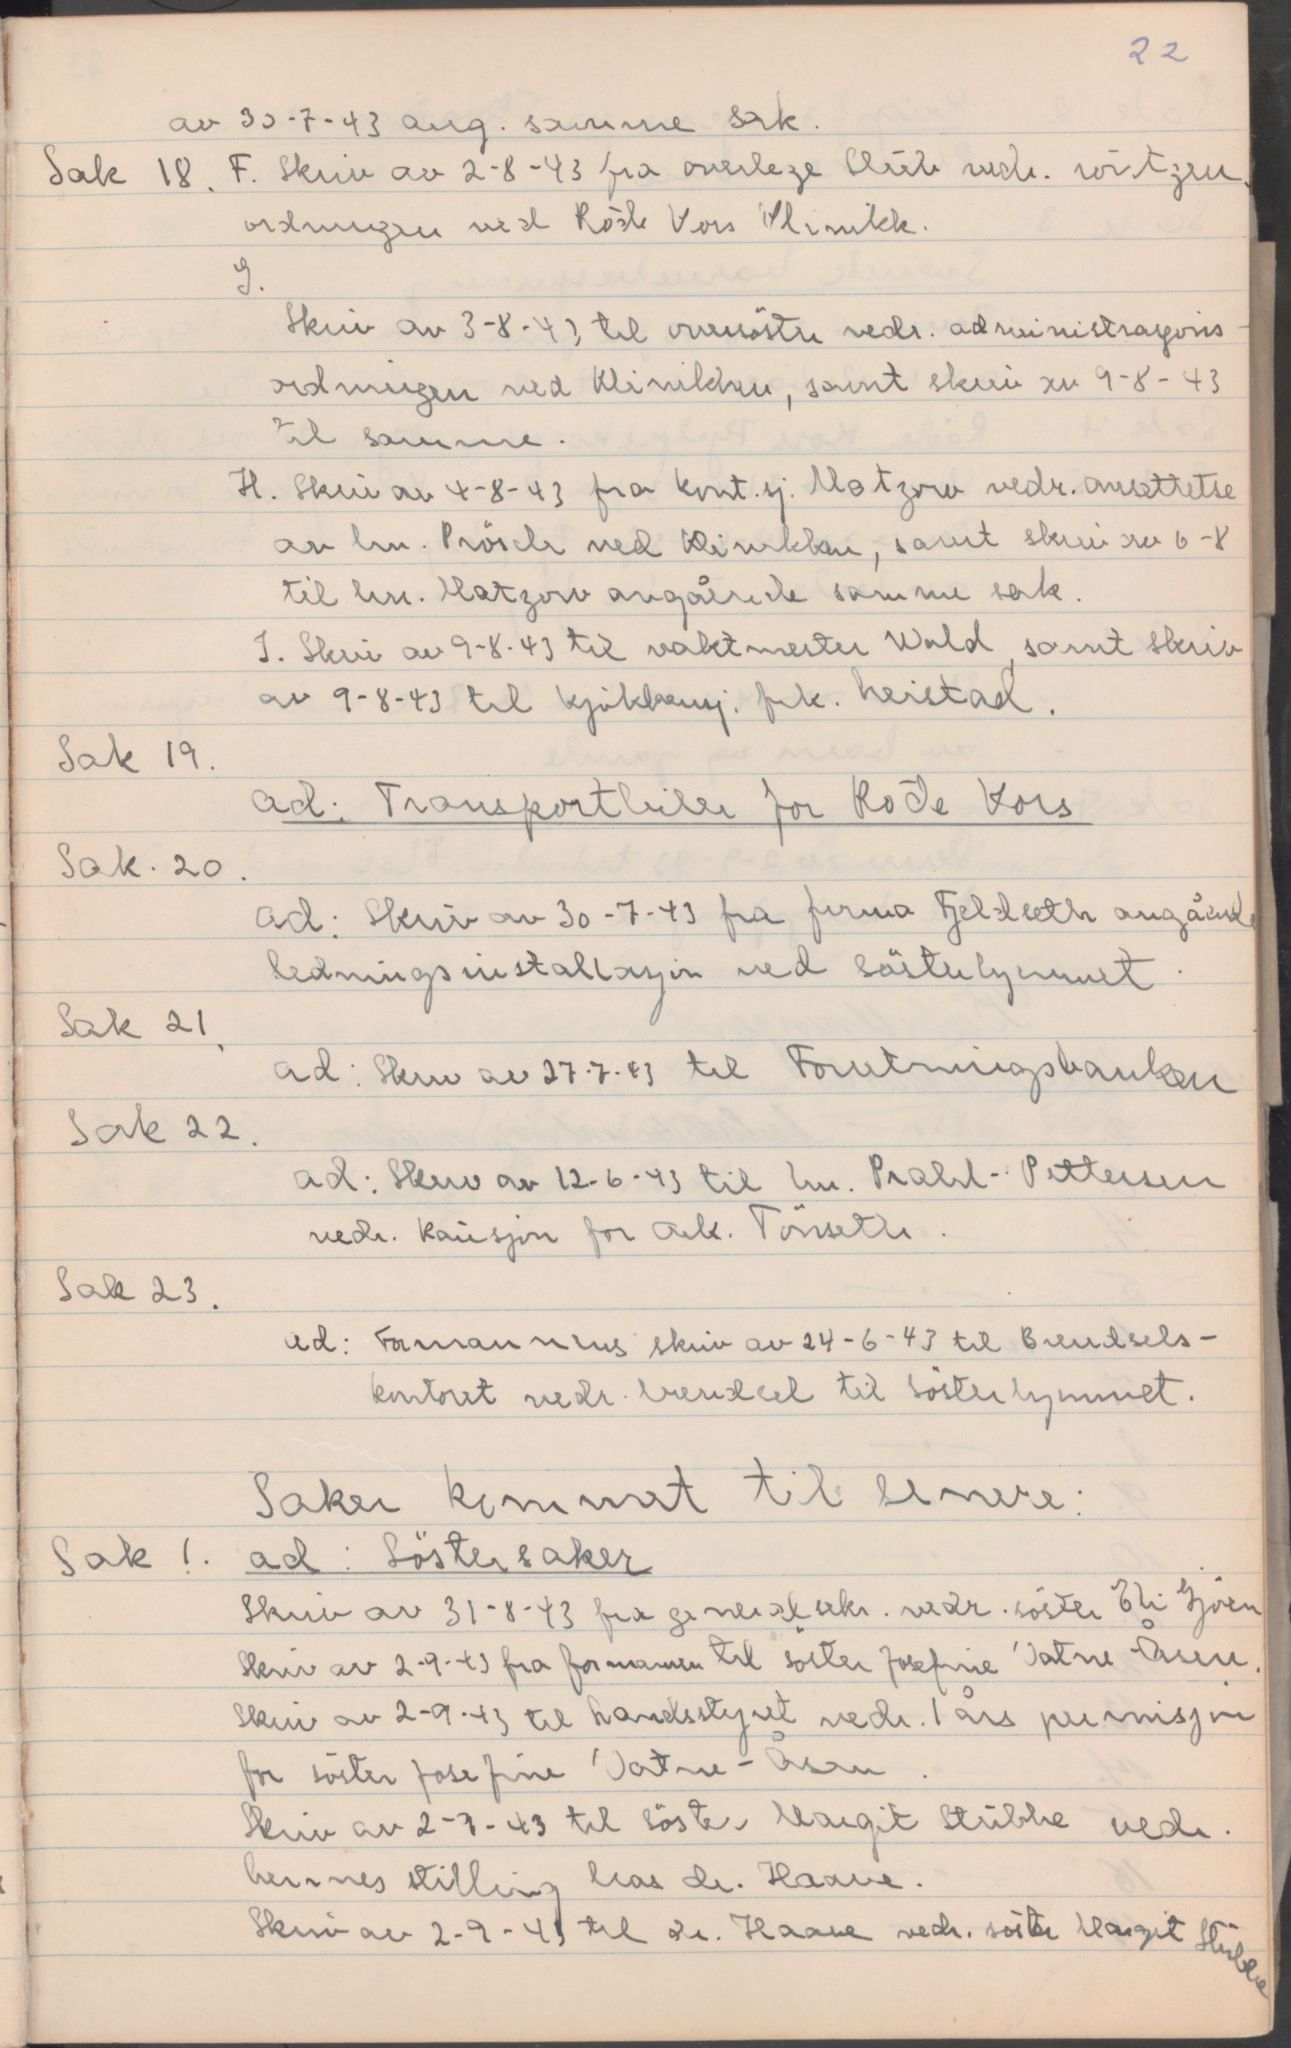 22
av 30-7-43 ang. samme sak.
Sak 18. F. Skriv av 2-8-43 fra overlege vedr. röntgen-
ordningen ved Röde Kors Klinikk.
G.
Skriv av 3-8-43 til oversöster vedr. administrasjons-
ordningen ved Klinikken, samt skriv av 9-8-43
til samme.
H. Skriv av 4-8-43 fra kont.sj. Matzow vedr. ansettelse
av hr. Prösch ved Klinikken, samt skriv av 6-8
til hr. Matzow angående samme sak.
I. Skriv av 9-8-43 til vaktmester Wold, samt skriv
av 9-8-43 til kjökkensj. frk. Leistad.
Sak 19.
ad: Transportbiler for Röde Kors
Sak. 20.
ad: Skriv av 30-7-43 fra firma Fjeldseth angående
ledningsinstallasjon ved Sösterhjemmet.
Sak 21.
ad: Skriv av 27-7-43 til Forretningsbanken
Sak 22.
ad: Skriv av 12-6-43 til hr. Prahl-Pettersen
vedr. kausjon for ark. Tönseth.
Sak 23.
ad: Formannens skriv av 24-6-43 til Brendsels-
kontoret vedr. brendsel til Söster hjemmet.
Saker kommet til senere:
Sak 1. ad: Söstersaker
Skriv av 31-8-43 fra generalsekr. vedr. söster Eli Gjöen
Skriv av 2-9-43 fra formannen til söster Josefine Vatne-Åsen.
Skriv av 2-9-43 til Landsstyret vedr. 1 års permisjon
for söster Josefine Vatne-Åsen.
Skriv av 2-9-43 til Söster Margit Stübbe vedr.
hennes stilling hos dr. Haave.
Skriv av 2-9-43 til dr. Haave vedr. söster Margit Stübbe